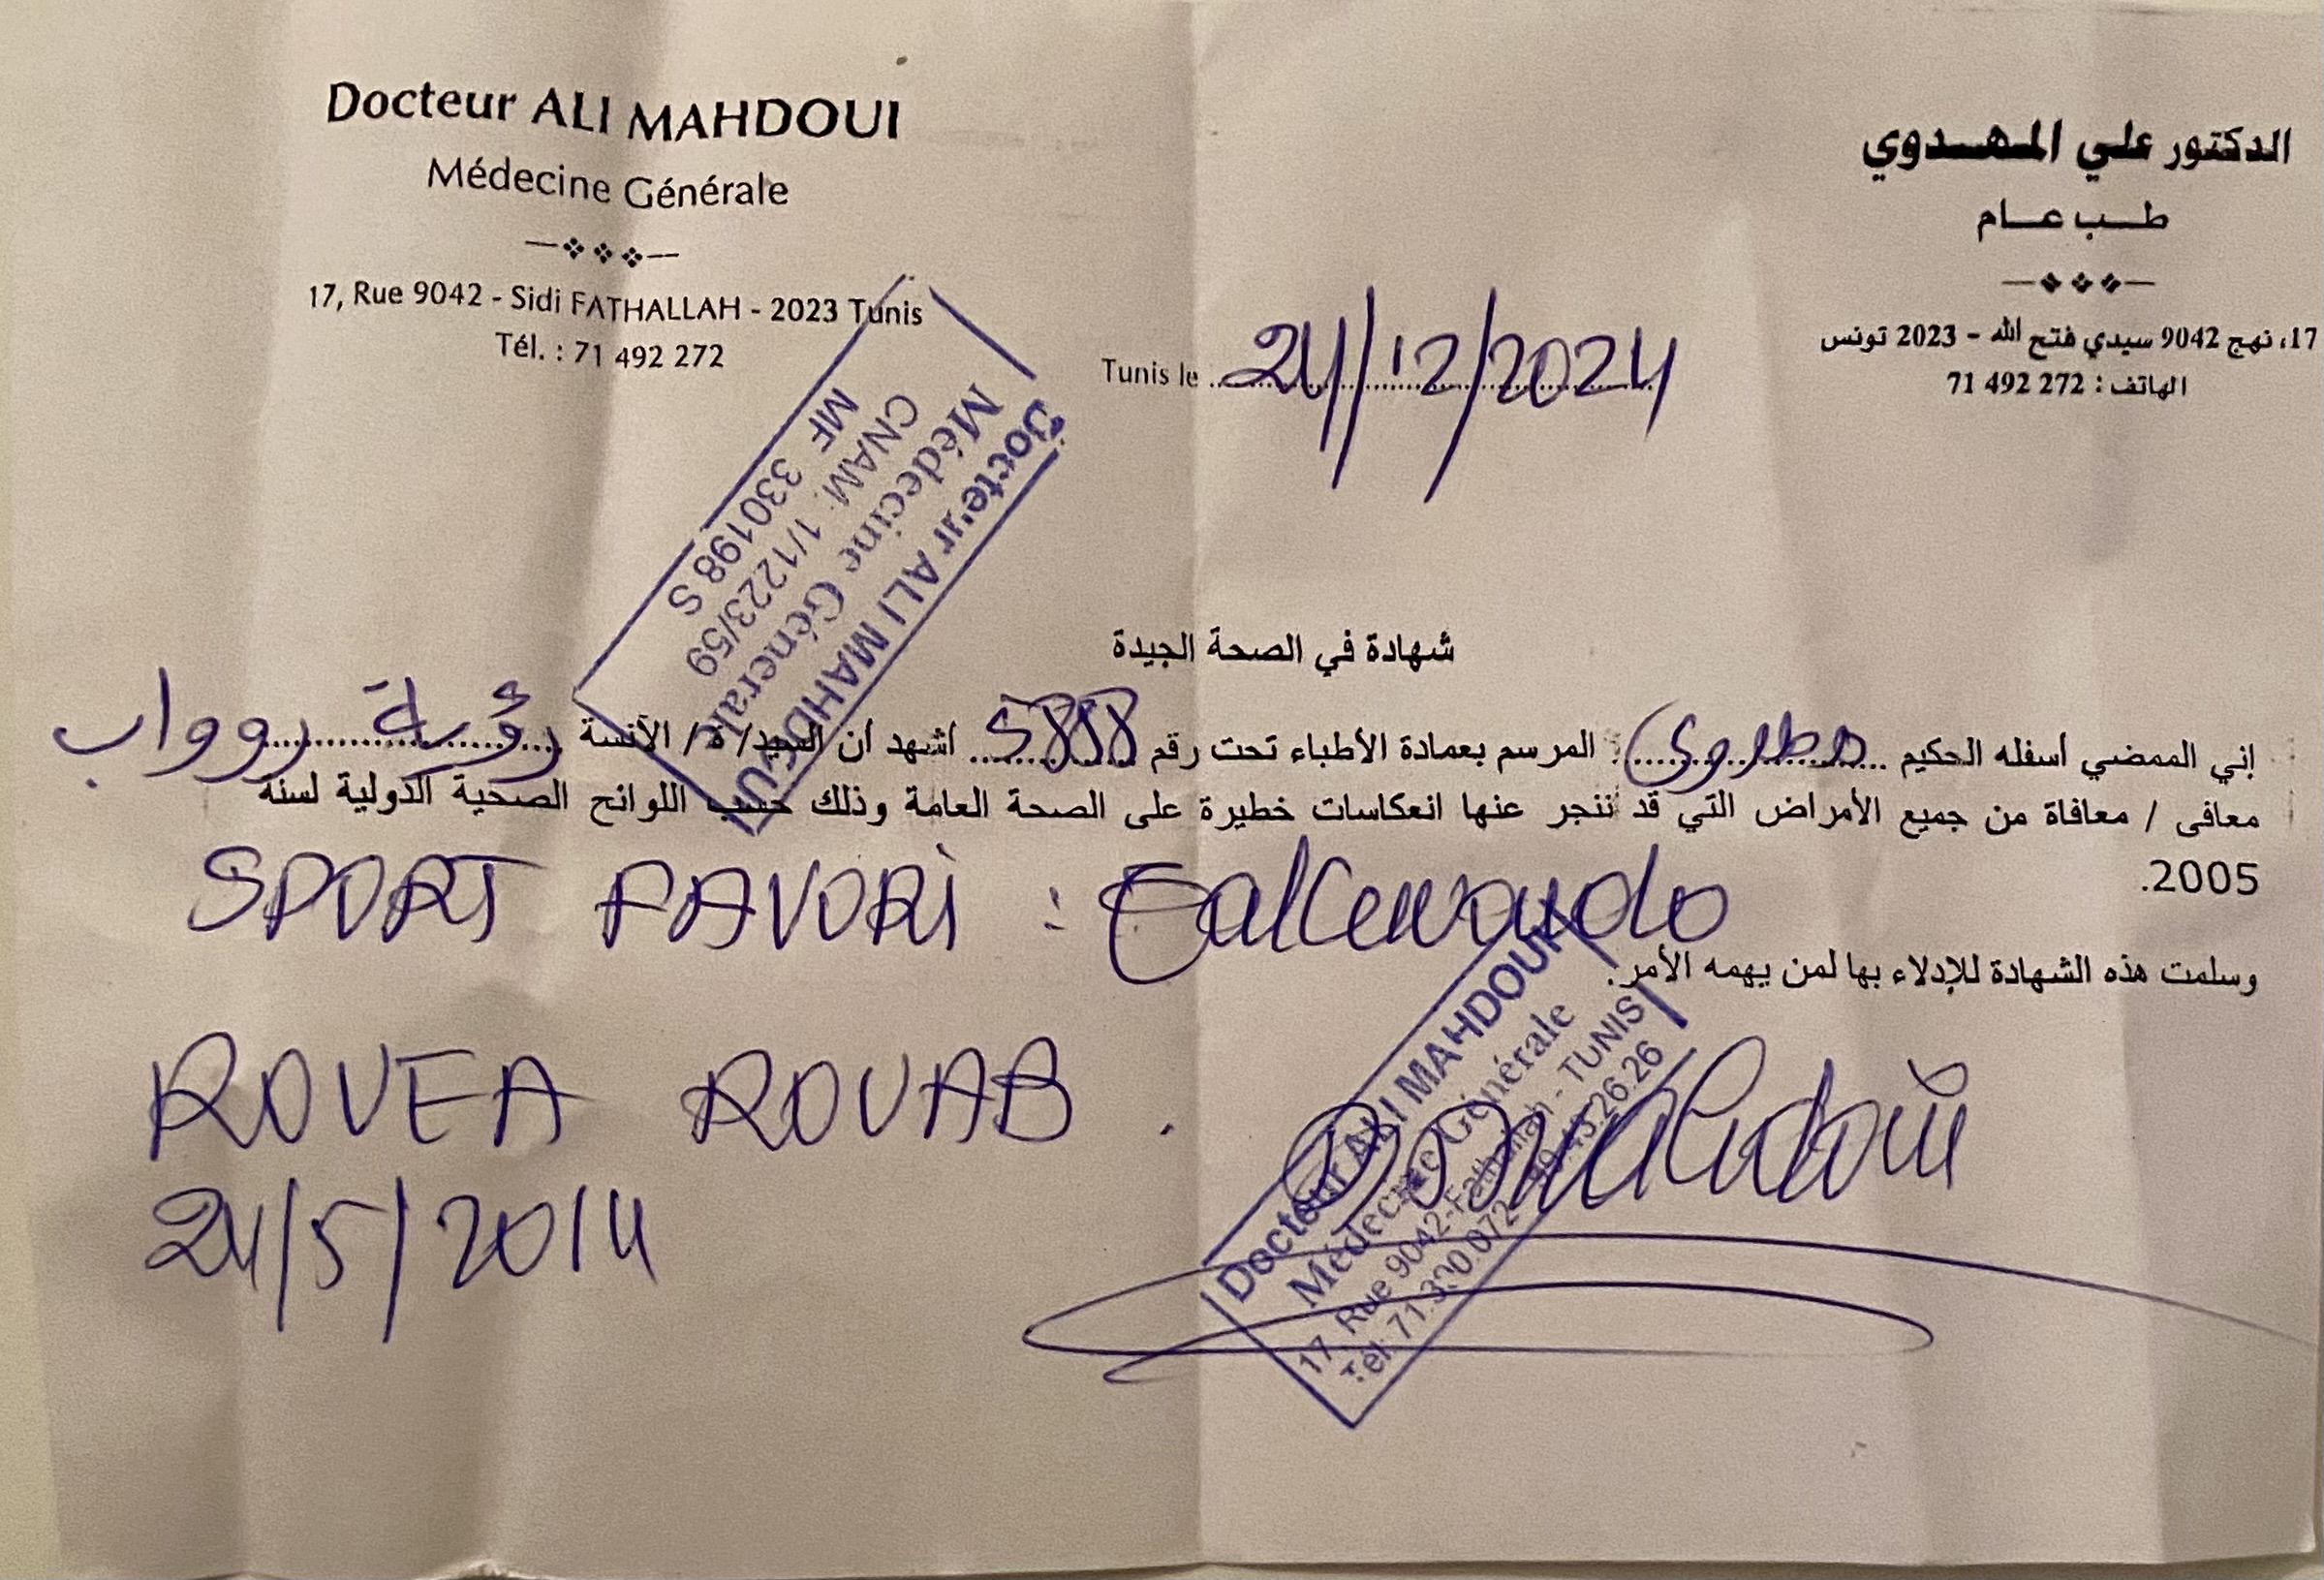 Docteur ALI MAHDOUI
Médecine Générale
17, Rue 9042 - Sidi FATHALLAH - 2023 Tunis
Tél. : 71 492 272
الدكتور علي المهدوي
طب عام
17، نهج 9042 سيدي فتح الله - 2023 تونس
الهاتف : 272 492 71
Tunis le 24/12/2024
Docteur ALI MAHDOUI
Médecine Générale
CNAM: 1/1223/59
MF 330198 S
شهادة في الصحة الجيدة
إني الممضي أسفله الحكيم مهدوي المرسم بعمادة الأطباء تحت رقم 5888 أشهد أن السيد/ ة / الآنسة رؤية روواب
معافى / معافاة من جميع الأمراض التي قد تنجر عنها انعكاسات خطيرة على الصحة العامة وذلك حسب اللوائح الصحية الدولية لسنة
2005.
SPORT FAVORI : Taekwondo
وسلمت هذه الشهادة للإدلاء بها لمن يهمه الأمر.
ROUEA ROUAB.
24/5/2014
Dr Mahdoui
Docteur ALI MAHDOUI
Médecine Générale
17, Rue 9042-Fathallah - TUNIS